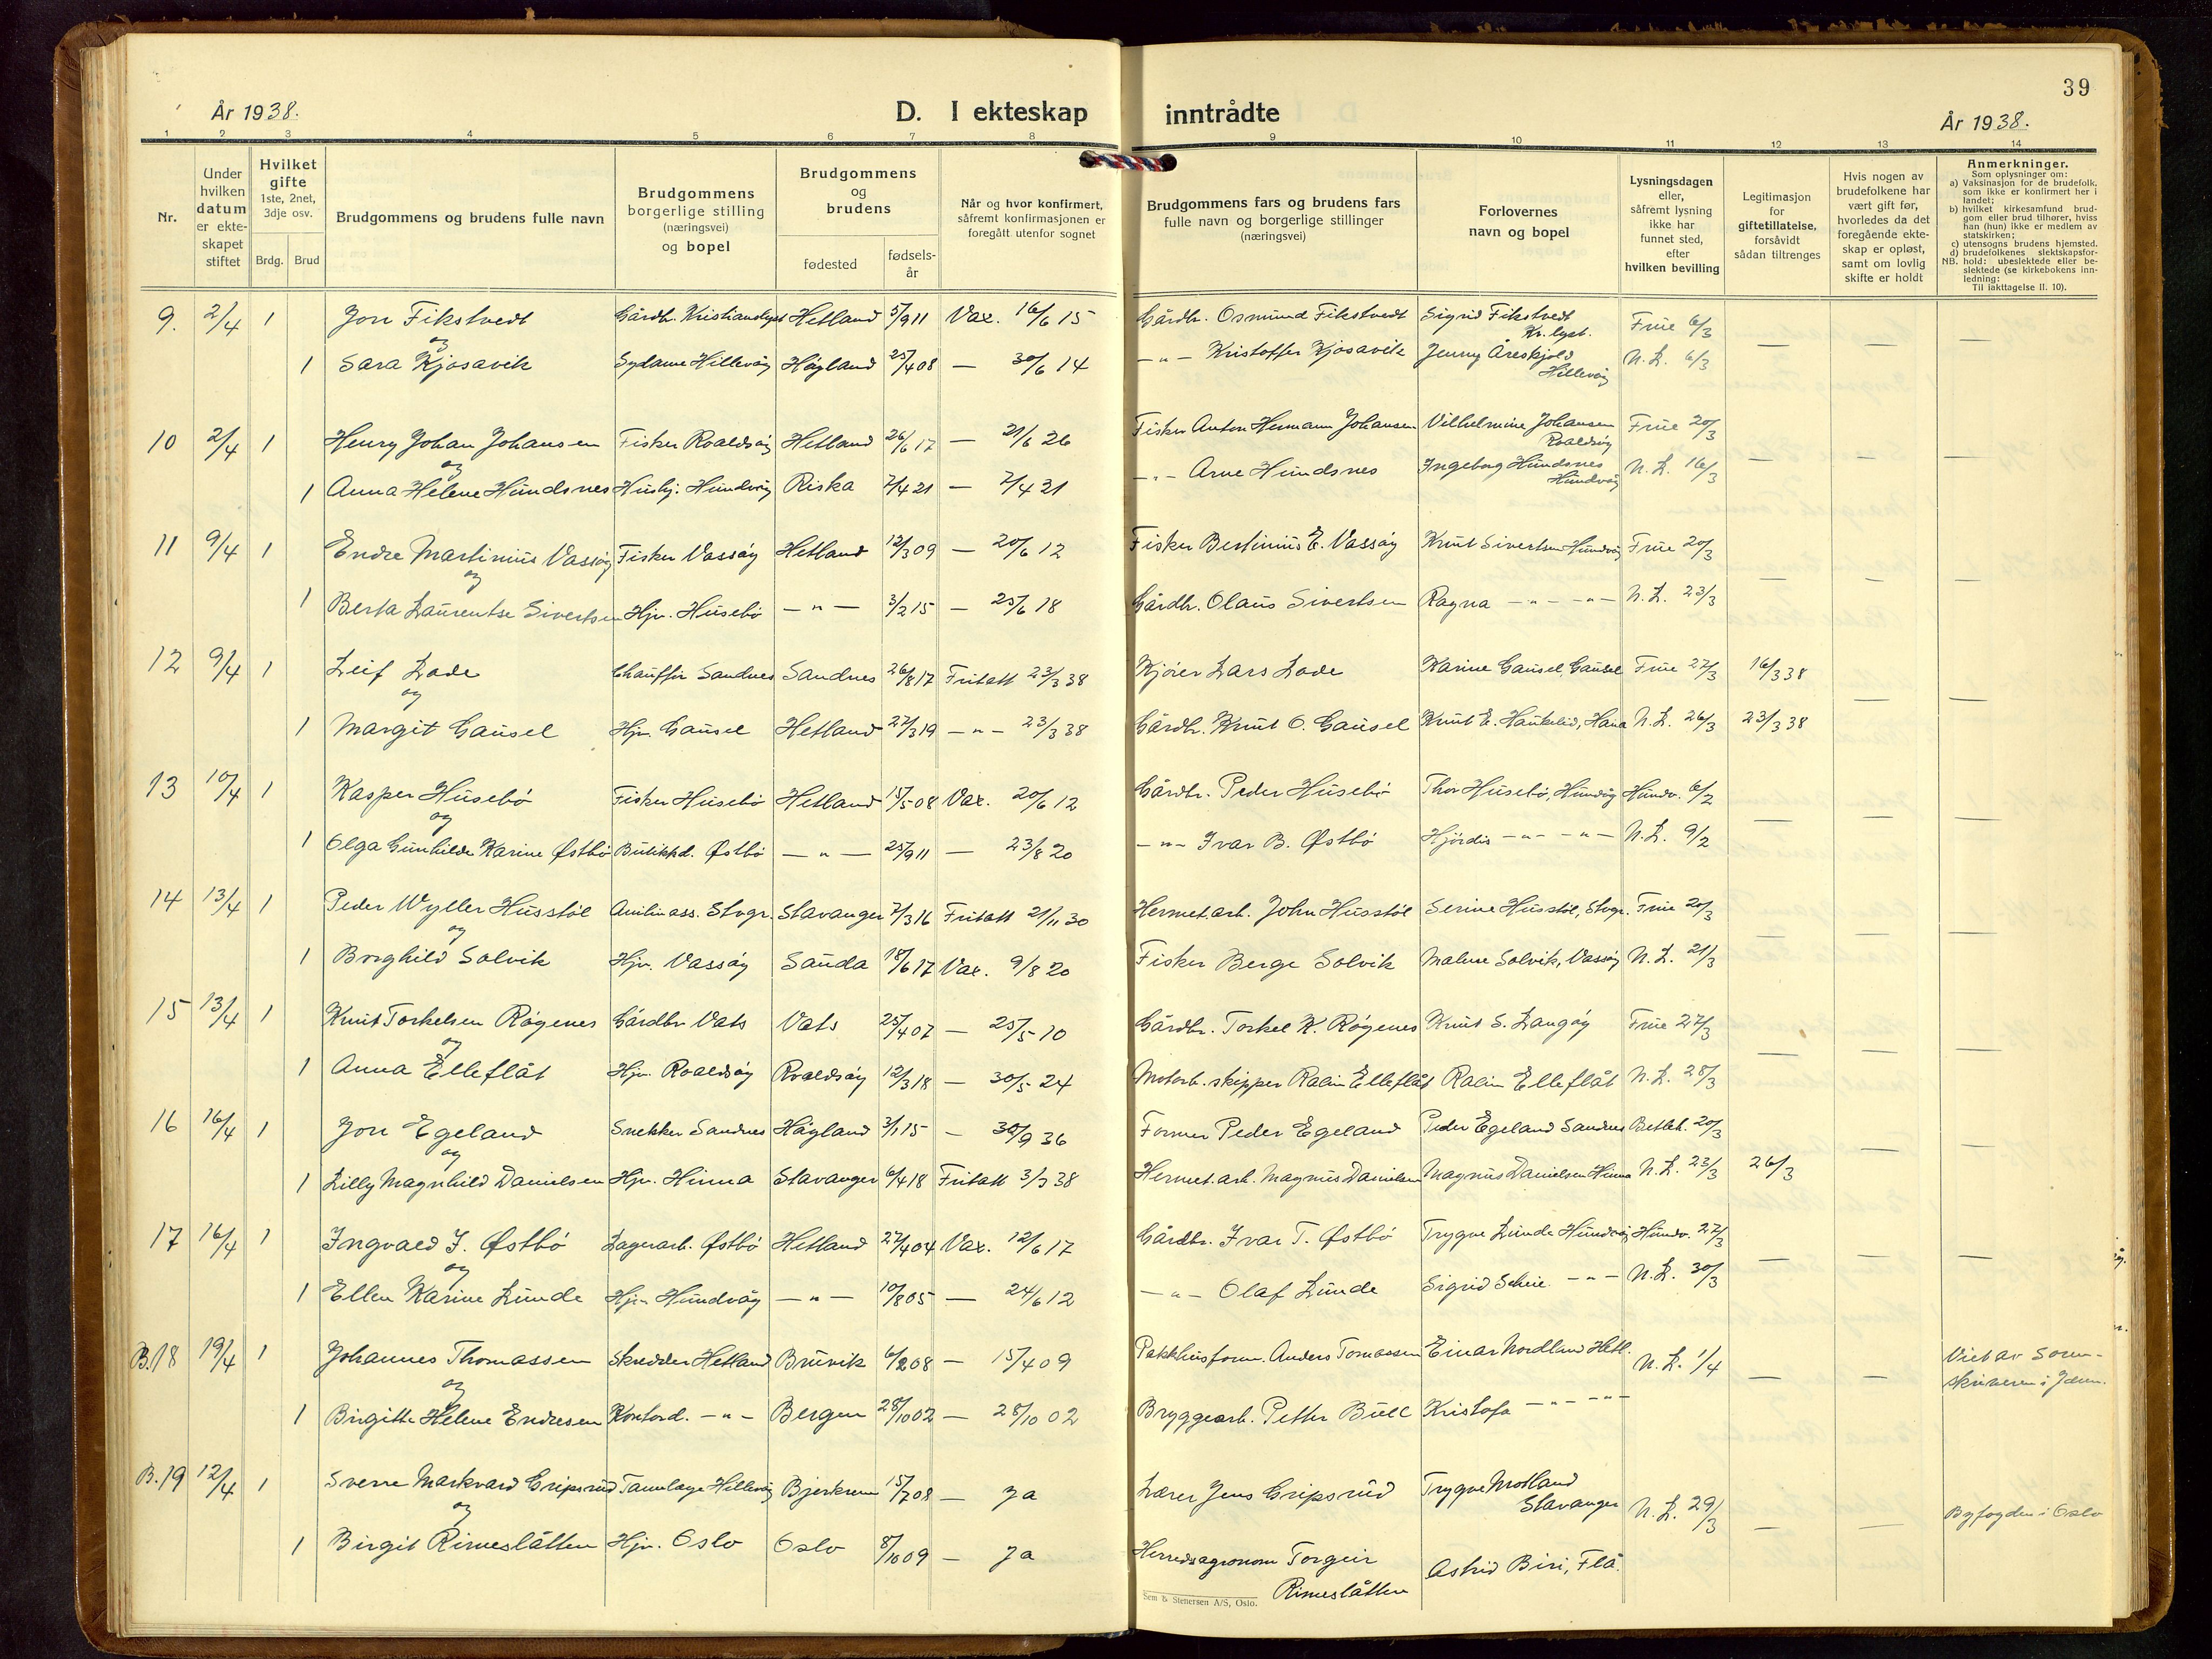 39
År 1938.
D. I ekteskap inntrådte
År 1938.
1 2 3 4 5 6 7 8 9 10 11 12 13 14
Nr.
Under hvilken datum er ekteskapet stiftet
Hvilket gifte 1ste, 2net, 3dje osv.
Brdg. Brud
Brudgommens og brudens fulle navn
Brudgommens borgerlige stilling (næringsvei) og bopel
Brudgommens og brudens
fødested
fødsels-år
Når og hvor konfirmert, såfremt konfirmasjonen er foregått utenfor sognet
Brudgommens fars og brudens fars fulle navn og borgerlige stillinger (næringsvei)
Forlovernes navn og bopel
Lysningsdagen eller, såfremt lysning ikke har funnet sted, efter hvilken bevilling
Legitimasjon for giftetillatelse, forsåvidt sådan tiltrenges
Hvis nogen av brudefolkene har vært gift før, hvorledes da det foregående ekteskap er opløst, samt om lovlig skifte er holdt
Anmerkninger.
Som oplysninger om:
a) Vaksinasjon for de brudefolk, som ikke er konfirmert her i landet;
b) hvilket kirkesamfund brudgom eller brud tilhører, hviss han (hun) ikke er medlem av statskirken;
c) utensogns brudens hjemsted.
d) brudefolkenes slektskapsforhold: ubeslektede eller beslektede (se kirkebokens innledning:
NB.
Til iakttagelse II. 10).
9. 2/4 1 Jon Fikstvedt Gårdbr. Kristianslyst Hetland 5/9 11 Vax. 16/6 15 Gårdbr. Osmund Fikstvedt Sigrid Fikstvedt Kr.lyst. Frue 6/3 —
og
1 Sara Kjosavik Sydame Hillevåg Høyland 25/4 08 — 30/6 14 —"— Kristoffer Kjosavik Jenny Åreskjold Hillevåg N.L. 6/3
10 2/4 1 Henry Johan Johansen Fisker Roaldsøy Hetland 26/6 17 — 21/6 26 Fisker Anton Hermann Johansen Vilhelmine Johansen Roaldsøy Frue 20/3
og
1 Anna Helene Hundsnes Hushj. Hundvåg Riska 7/4 21 — 7/4 21 —"— Arne Hundsnes Ingeborg Hundsnes Hundvåg N.L. 16/3
11 9/4 1 Endre Martinius Vassøy Fisker Vassøy Hetland 12/3 09 — 20/6 12 Fisker Bertinius E. Vassøy Knut Sivertsen Hundvåg Frue 20/3
og
1 Berta Laurentse Sivertsen Hjv. Husebø —"— 3/2 15 — 25/6 18 Gårdbr. Olaus Sivertsen Ragna —"— —"— N.L. 23/3
12 9/4 1 Leif Lode Chauffør Sandnes Sandnes 26/8 17 Fritatt 23/3 38 Kjører Lars Lode Karine Gausel, Gausel Frue 27/3 16/3 38
og
1 Margit Gausel Hjv. Gausel Hetland 27/3 19 —"— 23/3 38 Gårdbr. Knut O. Gausel Knut E. Haukelid, Hana N.L. 26/3 23/3 38
13 10/4 1 Kasper Husebø Fisker Husebø Hetland 15/5 08 Vax. 20/6 12 Gårdbr. Peder Husebø Thor Husebø, Hundvåg Hundv. 6/2
og
1 Olga Gunhilde Karine Østbø Butikkd. Østbø —"— 25/9 11 — 23/8 20 —"— Ivar B. Østbø Hjørdis —"— —"— N.L. 9/2
14 13/4 1 Peder Wyller Husstøl Stvgr. Stavanger 7/3 16 Fritatt 21/11 30 Hermet.arb. John Husstøl Serine Husstøl, Stvgr. Frue 20/3
og
1 Borghild Solvik Hjv. Vassøy Sauda 18/6 17 Vax. 9/8 20 Fisker Berge Solvik Malene Solvik, Vassøy N.L. 21/3
15 13/4 1 Knut Torkelsen Røgenes Gårdbr Vats Vats 25/4 07 — 25/5 10 Gårdbr. Torkel K. Røgenes Knut S. Langøy Frue 27/3
og
1 Anna Elleflåt Hjv. Roaldsøy Roaldsøy 12/3 18 — 30/5 24 Motorb.skipper Ralin Elleflåt Ralin Elleflåt N.L. 28/3
16 16/4 1 Jon Egeland Snekker Sandnes Høyland 3/1 15 — 30/9 36 Former Peder Egeland Peder Egeland Sandnes Betleh. 20/3
og
1 Lilly Magnhild Danielsen Hjv. Hinna Stavanger 6/4 18 Fritatt 3/3 38 Hermet.arb. Magnus Danielsen Magnus Danielsen Hinna N.L. 23/3 26/3
17 16/4 1 Ingvald I. Østbø Lagerarb. Østbø Hetland 27/4 04 Vax. 12/6 17 Gårdbr. Ivar T. Østbø Trygve Lunde Hundvåg Hundv. 27/3
og
1 Ellen Karine Lunde Hjv. Hundvåg —"— 10/8 05 — 24/6 12 —"— Olaf Lunde Sigrid Scheie —"— N.L. 30/3
B.18 19/4 1 Johannes Thomassen Skredder Hetland Bruvik 6/2 08 — 15/4 09 Pakkhusform. Anders Tomassen Einar Nordland Hetl. N.L. 1/4 — — Viet av Sorenskriveren i
og
1 Birgitte Helene Endresen Kontord. —"— Bergen 28/10 02 — 28/10 02 Bryggearb. Petter Bull Kristofa —"— —"—
B.19 12/4 1 Sverre Markvard Gripsrud Tannlæge Hillevåg Bjerkrem 15/7 08 — Ja Lærer Jens Gripsrud Trygve Motland Stavanger N.L. 29/3 — — Byfogden i Oslo
og
1 Birgit Rimeslåtten Hjv. Oslo Oslo 8/10 09 — Ja Herredsagronom Torgeir Rimeslåtten Astrid Biri, Flå.
Sem & Stenersen A/S, Oslo.